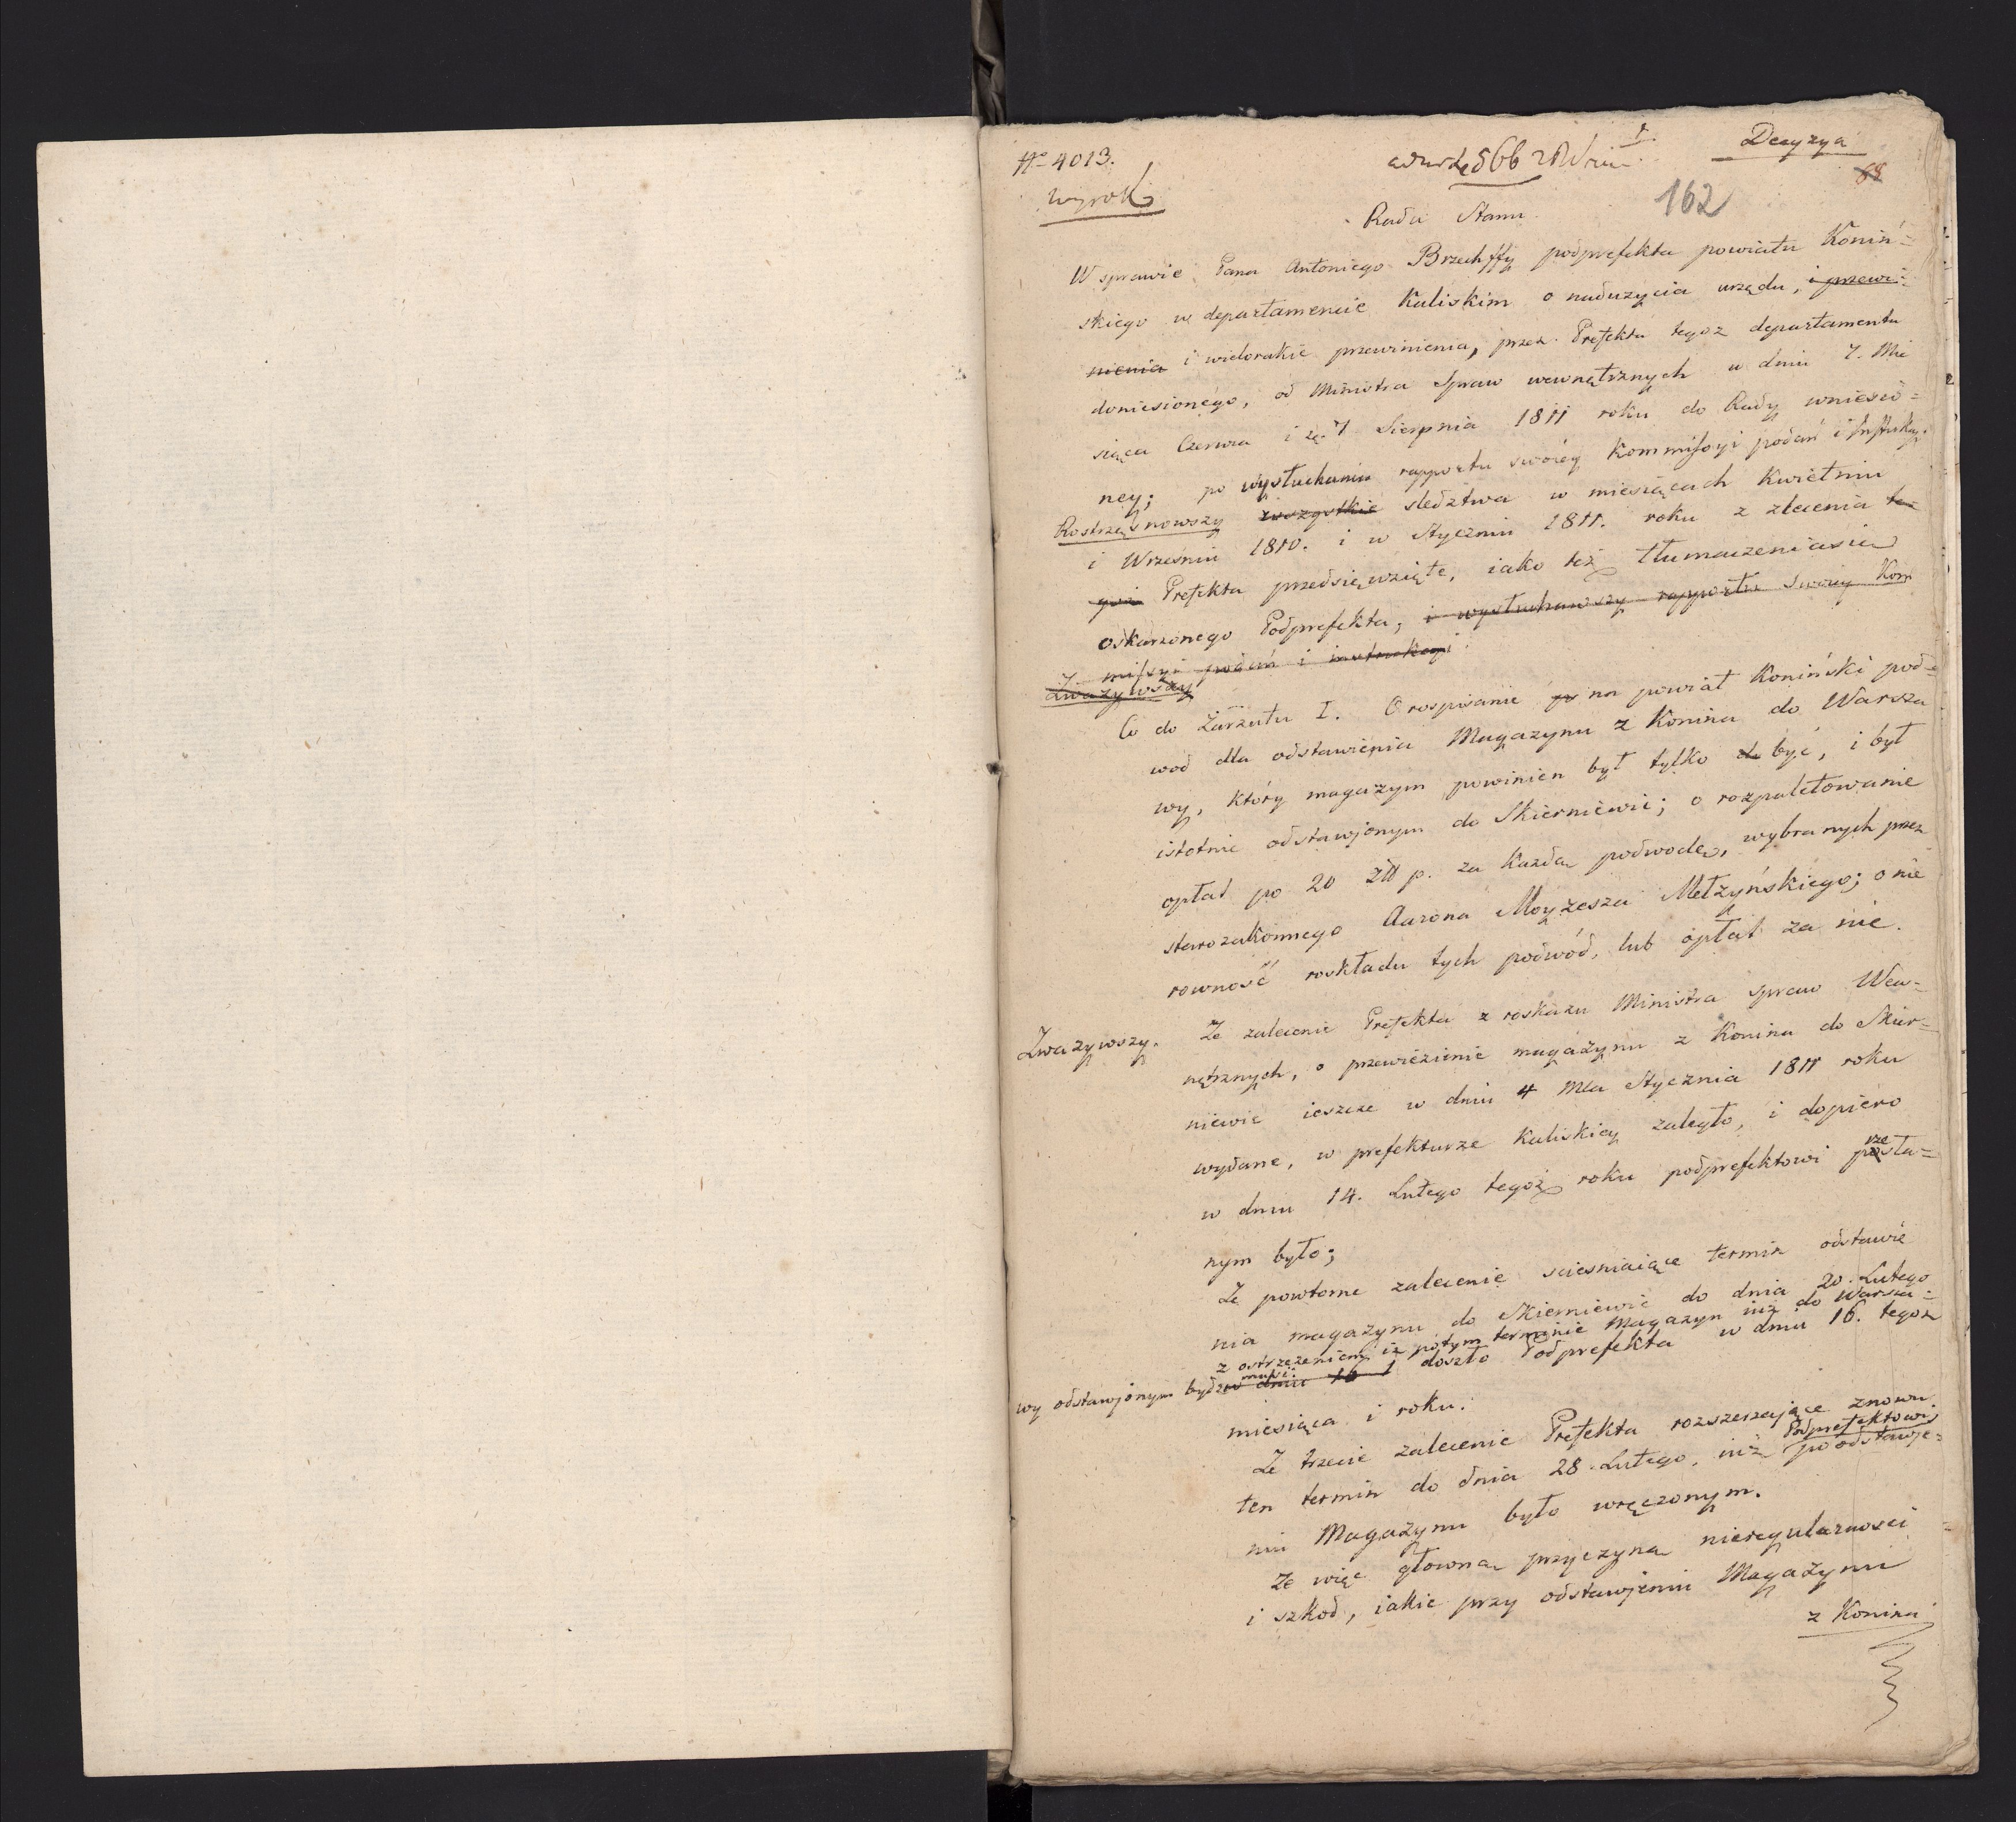 No 4013.
566
Decyzya
Wyrok
88
162
Rada Stanu
W sprawie Pana Antoniego Brzechffy podprefekta powiatu Koniń-
skiego w departamencie Kaliskim o nadużycia urzędu, i przewi-
nienia i wielorakie przewinienia, przez Prefekta tegoż departamentu
doniesionego, od Ministra Spraw wewnętrznych w dniu 7. Mie
siąca Czerwca i 7 Sierpnia 1811 roku do Rady wniesio-
ney; po wysłuchaniu rapportu swoiéy Kommissyi podań i Instrukcyi.
Rostrząsnowszy wszystkie sledztwa w miesiącach Kwietniu
i Wrześniu 1810. i w Styczniu 1811. roku z zlecenia te-
goż Prefekta przedsięwzięte, iako też tłumaczenia się
oskarżonego Podprefekta, i wysłuchawszy rapportu swoiey Kom
missyi podań i instrukcyi
Zważywszy
Co do Zarzutu I. O rospisanie po na powiat Koniński pod-
wod dla odstawienia Magazynu z Konina do Warsza
wy, który magazyn powinien był tylko do być, i był
istotnie odstawjonym do Skierniewic; o rozpaletowanie
opłat po 20 złł p. za każdą podwodę, wybranych przez
starozakonnego Aarona Moyżesza Mełżyńskiego; o nie
rowność roskładu tych podwód, lub opłat za nie.
Zważywszy. Ze zalecenie Prefekta z roskazu Ministra spraw Wew-
nętrznych, o przewiezienie magazynu z Konina do Skier-
niewic ieszcze w dniu 4 Mca Stycznia 1811 roku
wydane, w prefekturze Kaliskiey zaległo, i dopiero
w dniu 14. Lutego tegoż roku podprefektowi przesła-
nym było;
Ze powtorne zalecenie ściesniaiące termin odstawie
nia magazynu do Skierniewic do dnia 20. Lutego
z ostrzeżeniem iż po tym terminie Magazyn iuż do Warsza-
wy odstawjonym bydź musi: w dniu 16 doszło Podprefekta w dniu 16. tegoż
miesiąca i roku.
Ze trzecie zalecenie Prefekta rozszerzaiące znowu
ten termin do dnia 28. Lutego, iuż Podprefektowi po odstawje-
niu Magazynu było wręczonym.
Ze więc głowną przyczyną nieregularności
i szkod, iakie przy odstawjeniu Magazynu
z Konina